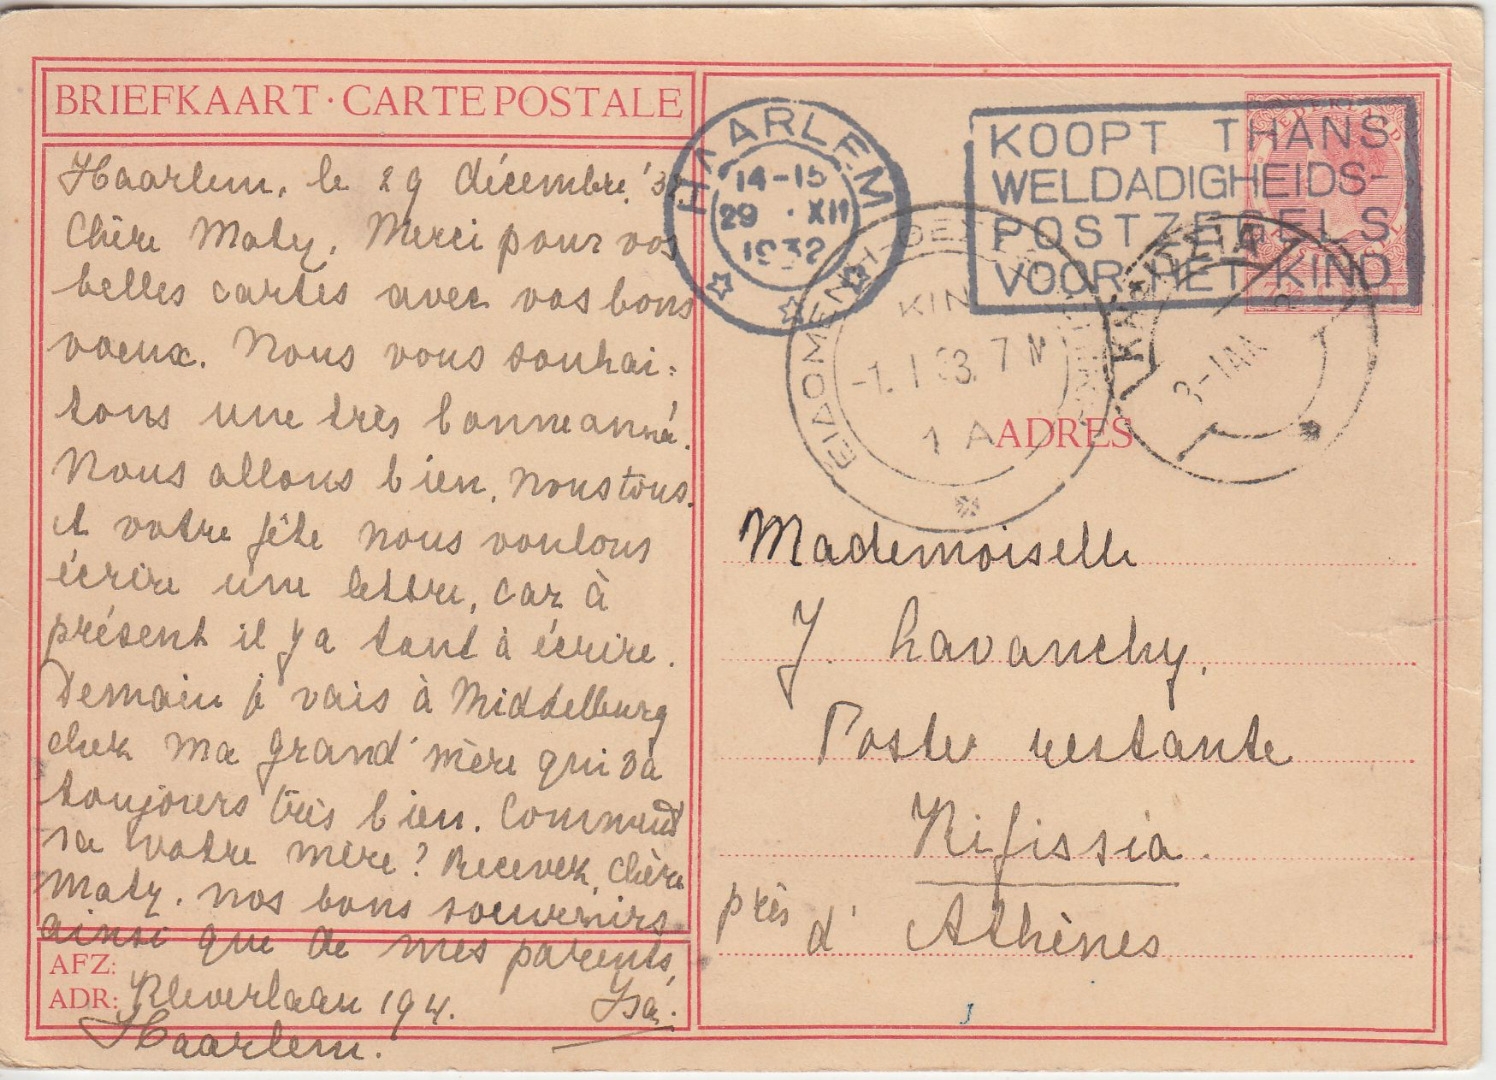 BRIEFKAART · CARTE POSTALE
Haarlem, le 29 décembre '3
Chère Maty. Merci pour vos
belles cartes avec vos bons
voeux. Nous vous souhai-
tons une très bonne année.
Nous allons bien, nous tous.
et votre fête nous voulons
écrire une lettre, car à
présent il y a tant à écrire.
Demain je vais à Middelburg
chez ma grand'mère qui va
toujours très bien. Comment
va votre mère? Recevez, chère
Maty, nos bons souvenirs
ainsi que de mes parents,
Isa.
AFZ:
ADR: Kleverlaan 194.
Haarlem.
HAARLEM
14-15
29 · XII
1932
KOOPT THANS
WELDADIGHEIDS-
POSTZEGELS
VOOR HET KIND
ΕΙΔΟΜΕΝΗ
-1. I 33. 7 M
1 A
3-ΙΑΝ
ADRES
Mademoiselle
J. Lavanchy.
Poste restante
Kifissia.
près d' Athènes